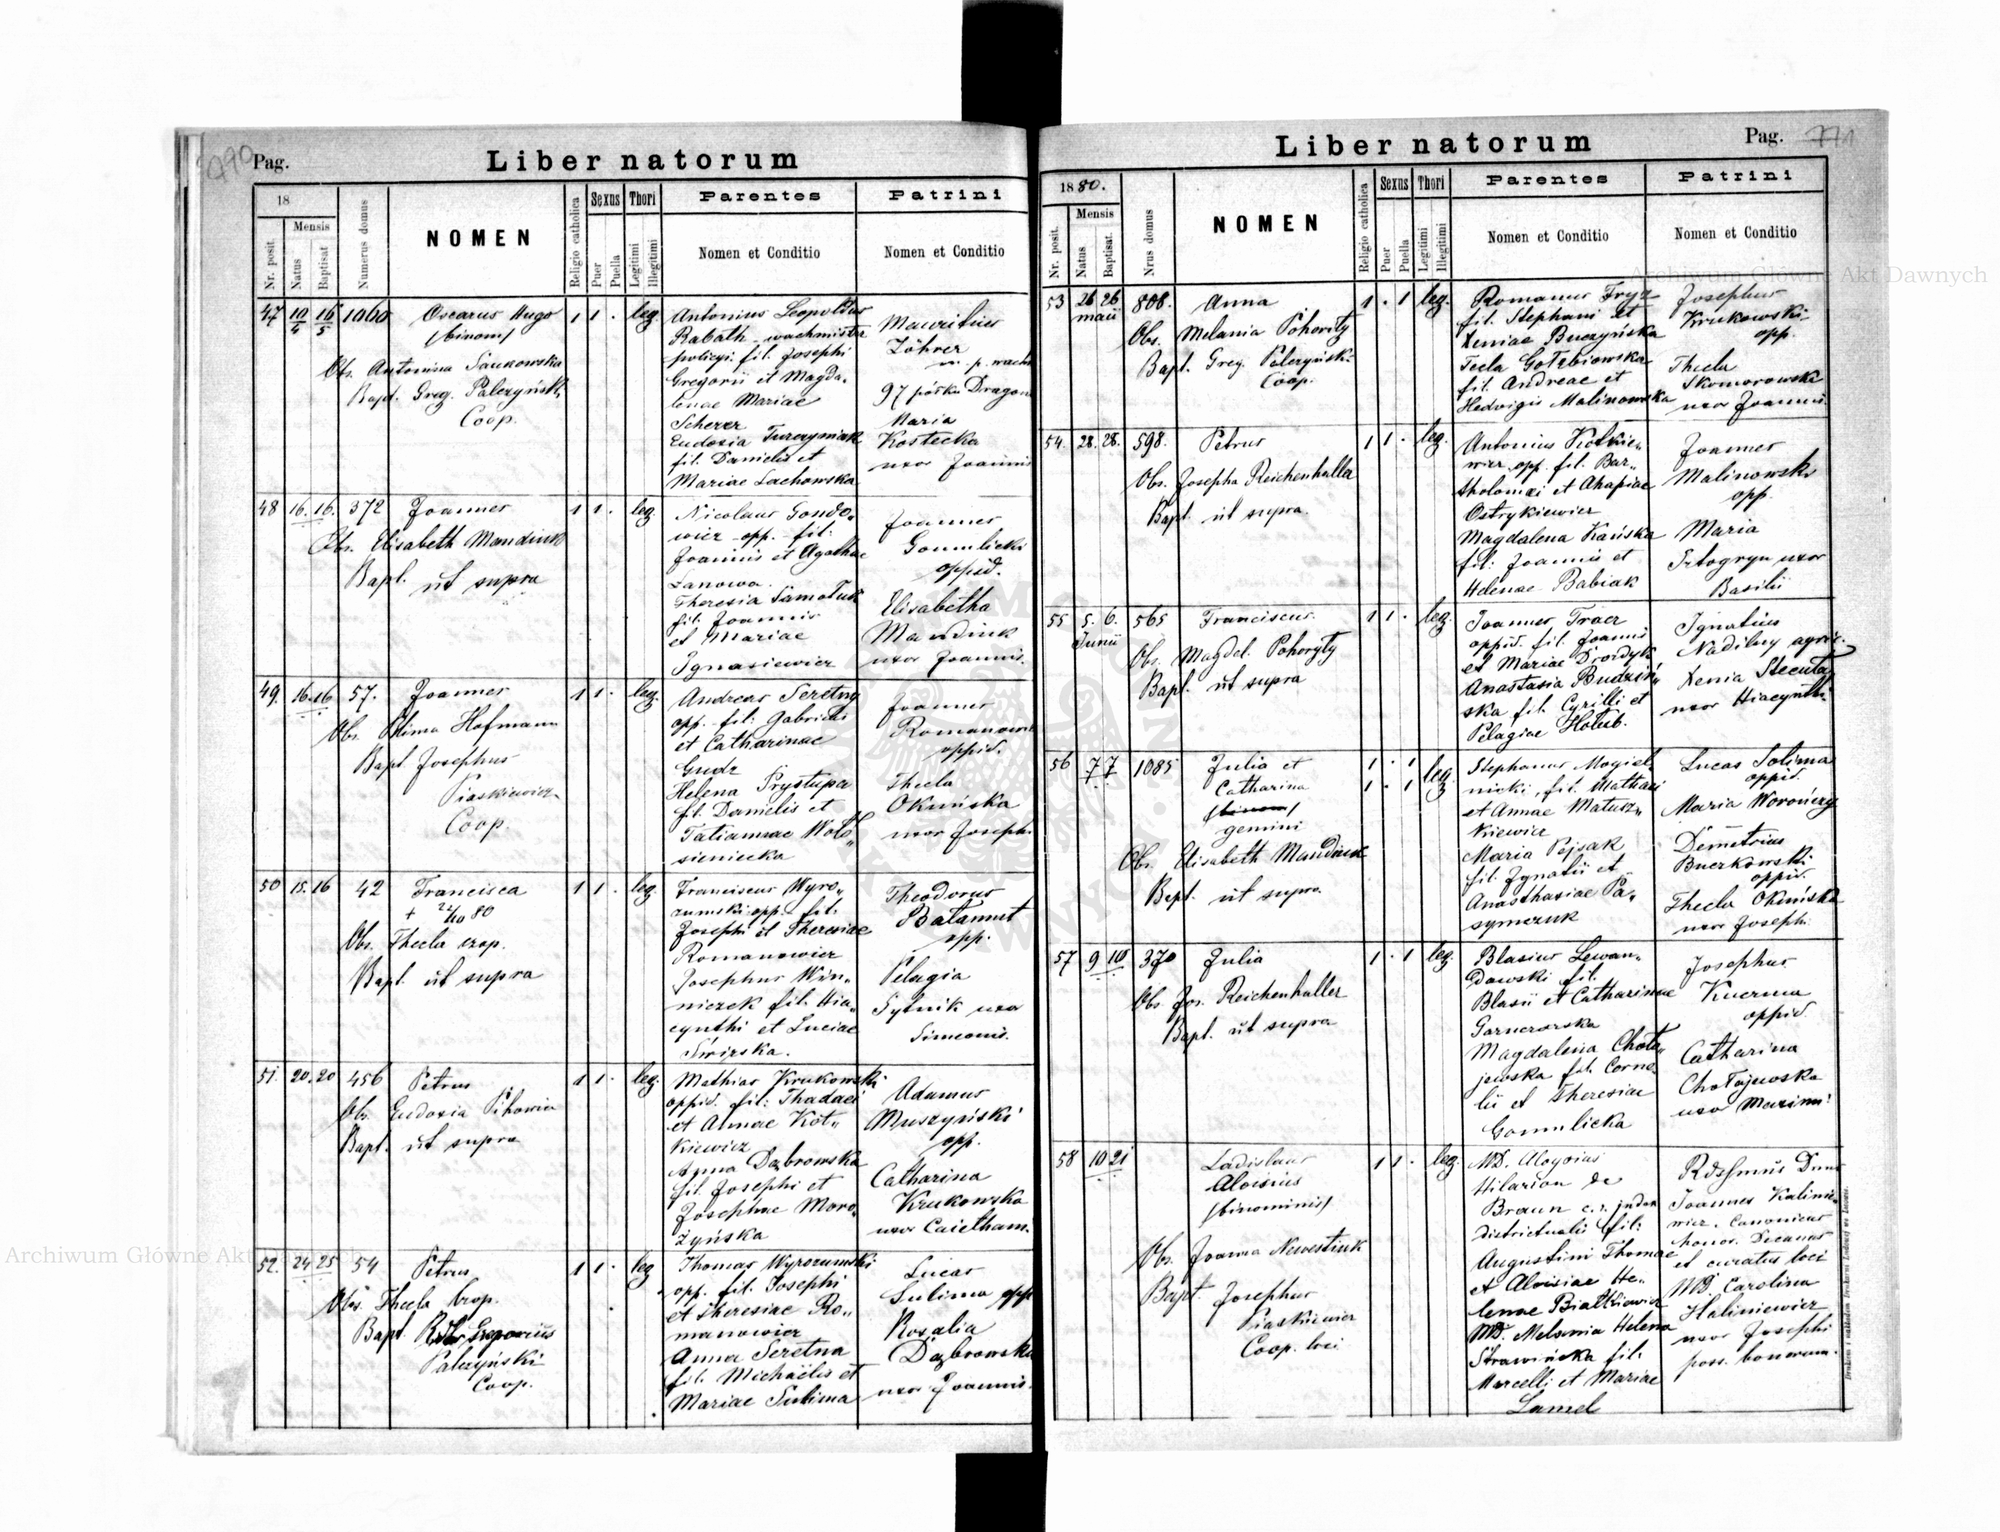 Pag.
Liber natorum
18
Nr. posit.
Mensis
Natus
Baptisat
Numerus domus
NOMEN
Religio catholica
Sexus
Puer
Puella
Thori
Legitimi
Illegitimi
Parentes
Nomen et Conditio
Patrini
Nomen et Conditio
47 10/5 16/5 1060 Oscarus Hugo 1 1 leg.
/binom/
Obs. Antonina
Bapt. Greg. Palczyński
Coop.
Antonius Leopoldus
Rabath wachmister
policyi fil. Josephi
Gregorii et Magda„
lenae Mariae
Scherer
Eudoxia Turczyniak
fil. Danielis et
Mariae Lachowska
Mauritius
Zöhrer
97 półku Dragon
Maria
Kostecka
uxor Joannis
48 16. 16. 372 Joannes 1 1 leg.
Obs. Elisabeth Mandiuk
Bapt. ut supra
Nicolaus Gondo„
wicz opp. fil.
Joannis et Agathae
Lanowa.
Theresia Samoluk
fil. Joannis
et Mariae
Ignasiewicz
Joannes
Gomulicki
oppid.
Elisabetha
Mandiuk
uxor Joannis.
49. 16. 16 57. Joannes 1 1 leg.
Obs. Hofmann
Bapt Josephus
Piaskiewicz
Coop.
Andreas Seretny
opp. fil: Gabrielis
et Catharinae
Gudz
Helena Prystupa
fil. Danielis et
Tatiannae Woło„
sieniecka
Joannes
oppid.
Thecla
Okińska
uxor Joseph.
50 15. 16 42 Francisca 1 1 leg.
+ 22/10 80
Obs. Thecla crop.
Bapt. ut supra
Franciscus Wyro„
zumski opp. fil.
Josephi et Theresiae
Romanowicz
Josephus Win„
niczek fil. Hia„
cynthi et Luciae
Świrska.
Theodorus
Bałamut
opp.
Pelagia
Sytnik uxor
Simeonis.
51. 20. 20 456 Petrus 1 1 leg.
Obs. Eudoxia
Bapt. ut supra
Mathias Krukowski
oppid. fil: Thadaei
et Annae Kot„
kiewicz
Anna Dąbrowska
fil. Josephi et
Josephae Moro„
zyńska
Adamus
Muszyński
opp.
Catharina
Krukowska
uxor Caietham.
52. 24 25 54 Petrus 1 1 leg
Obs. Thecla crop.
Bapt Gregorius
Palczyński
Coop.
Thomas Wyrozumski
opp. fil. Josephi
et Theresiae Ro„
manowicz
Anna Seretna
fil. Michaelis et
Mariae Sulima
Lucas
Sulima opp
Rosalia
Dąbrowska
uxor Joannis.
Liber natorum
Pag.
1880.
Nr. posit.
Mensis
Natus
Baptisat.
Nrus domus
NOMEN
Religio catholica
Sexus
Puer
Puella
Thori
Legitimi
Illegitimi
Parentes
Nomen et Conditio
Patrini
Nomen et Conditio
53 26 26 808. Anna 1 · 1 leg.
maii
Obs. Melania Pohoryty
Bapt. Greg. Palczyński
Coop.
Romanus Fryz
fil. Stephani et
Xeniae Buczyńska
Tecla Gołębiowska
fil. Andreae et
Hedvigis Malinowska
Josephus
Krukowski
opp.
Thecla
Skomorowska
uxor Joannis.
54. 28. 28. 598. Petrus 1 1 · leg.
Obs. Josepha Reichenhalla
Bapt. ut supra.
Antonius Kotkie„
wicz opp. fil. Bar„
tholomei et Ahapiae
Ostrykiewicz
Magdalena Kańska
fil. Joannis et
Helenae Babiak
Joannes
Malinowski
opp.
Maria
uxor
Basilii
55 5. 6. 565 Franciscus 1 1 · leg.
Junii
Obs. Magdal. Pohoryty
Bapt. ut supra
Joannes Tracz
oppid. fil. Joannis
et Mariae Drozdyk
Anastasia Budziń„
ska fil. Cyrilli et
Pelagiae Hołub.
Ignatius
Nadilny agric.
Xenia Stecula
uxor Hiacynthi
56 7 7 1085 Julia et 1 · 1 leg.
Catharina 1 · 1
/binom/
gemini
Obs. Elisabeth Mandiuk
Bapt. ut supra
Stephanus Mogiel„
nicki, fil. Mathaei
et Annae Matusz„
kiewicz
Maria Pejsak
fil. Ignatii et
Anasthasiae Pa„
symczuk
Lucas Solima
oppid.
Maria Woronczy
Demetrius
Buczkowski
oppid.
Thecla Okińska
uxor Josephi
57 9 10 370 Julia 1 · 1 leg.
Obs. Jos. Reichenhaller
Bapt. ut supra
Blasius Lewan„
dowski fil.
Blasii et Catharinae
Garnczarska
Magdalena Choło„
jewska fil. Corne„
lii et Theresiae
Gomulicka
Josephus
Kuczma
oppid.
Catharina
Chołojewska
uxor Maximi
58 10 21 Ladislaus 1 1 · leg.
Aloisius
/binominis/
Obs. Joanna Newestiuk
Bapt. Josephus
Piaskiewicz
Coop. loci
MD. Aloysius
Hilarion de
Braun c. r. judex
districtualis fil:
Augustini Thomae
et Aloisiae He„
lenae Białkiewicz
MD. Melania Helena
Strawińska fil:
Marcelli et Mariae
Lamel
Rdssmus Dnus
Joannes Kalinie„
wicz, Canonicus
honor. Decanus
et curatus loci
MD. Carolina
Kaliniewicz
uxor Josephi
poss. bonorum.
Archiwum Główne Akt Dawnych
Archiwum Główne Akt Dawnych